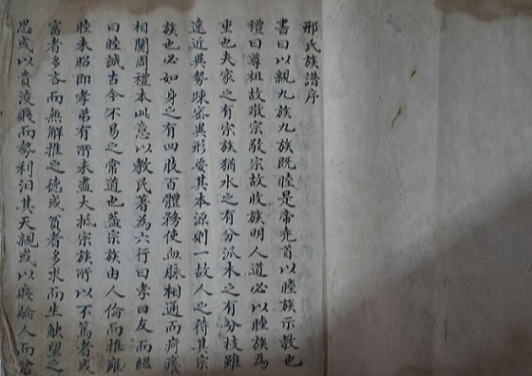 邢氏族譜序
書曰以親九族九族既睦是帝堯首以睦族示教也
禮曰尊祖故敬宗敬宗故收族明人道必以睦族為
重也夫家之有宗族猶水之有分派木之有分枝雖
遠近異勢疎密異形要其本源則一故人之待其宗
族也必如身之有四肢百體務使血脉相通而疴癢
相關周禮本此意以教民著為六行曰孝曰友而繼
曰睦誠古今不易之常道也蓋宗族由人倫而推雍
睦未昭即孝弟有所未盡大抵宗族所以不篤者或
富者多吝而無解推之德或貧者多求而生觖望之
思或以貴凌賤而勢利汨其天親或以賤驕人而